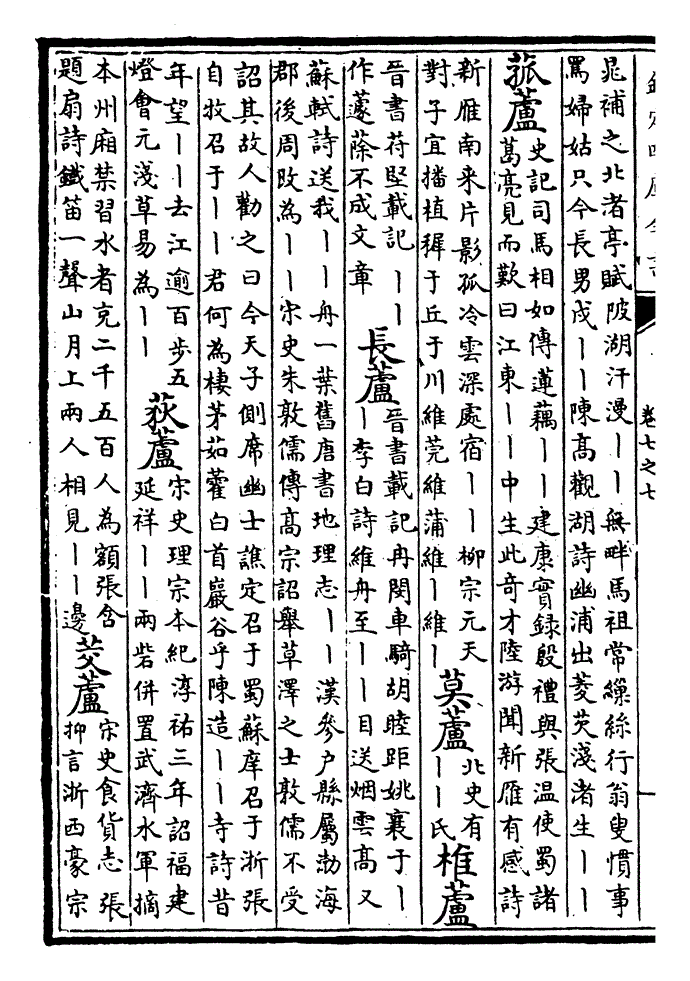 欽定四庫全書
卷七之七
晁補之北渚亭賦陂湖汗漫丨丨無畔馬祖常繅絲行翁叟慣事
罵婦姑只今長男戍丨丨陳髙觀湖詩幽浦出菱芡淺渚生丨丨
菰蘆
史記司馬相如傳蓮藕丨丨建康實録殷禮與張温使蜀諸
葛亮見而歎曰江東丨丨中生此奇才陸游聞新雁有感詩
新雁南来片影孤冷雲深處宿丨丨柳宗元天
對子宜播植穉于丘于川維莞維蒲維丨維丨
莫蘆
北史有
丨丨氏
椎蘆
晉書苻堅載記丨丨
作蘧蒢不成文章
長蘆
晉書載記冉閔車騎胡睦距姚襄于丨
丨李白詩維舟至丨丨目送烟雲髙又
蘇軾詩送我丨丨舟一葉舊唐書地理志丨丨漢參户縣屬渤海
郡後周改為丨丨宋史朱敦儒傳髙宗詔舉草澤之士敦儒不受
詔其故人勸之曰今天子側席幽士譙定召于蜀蘇庠召于浙張
自牧召于丨丨君何為棲茅茹藿白首巖谷乎陳造丨丨寺詩昔
年望丨丨去江逾百步五
燈會元淺草易為丨丨
荻蘆
宋史理宗本紀淳祐三年詔福建
延祥丨丨兩砦併置武濟水軍摘
本州廂禁習水者充二千五百人為額張含
題扇詩鐵笛一聲山月上兩人相見丨丨邊
茭蘆
宋史食貨志張
抑言浙西豪宗